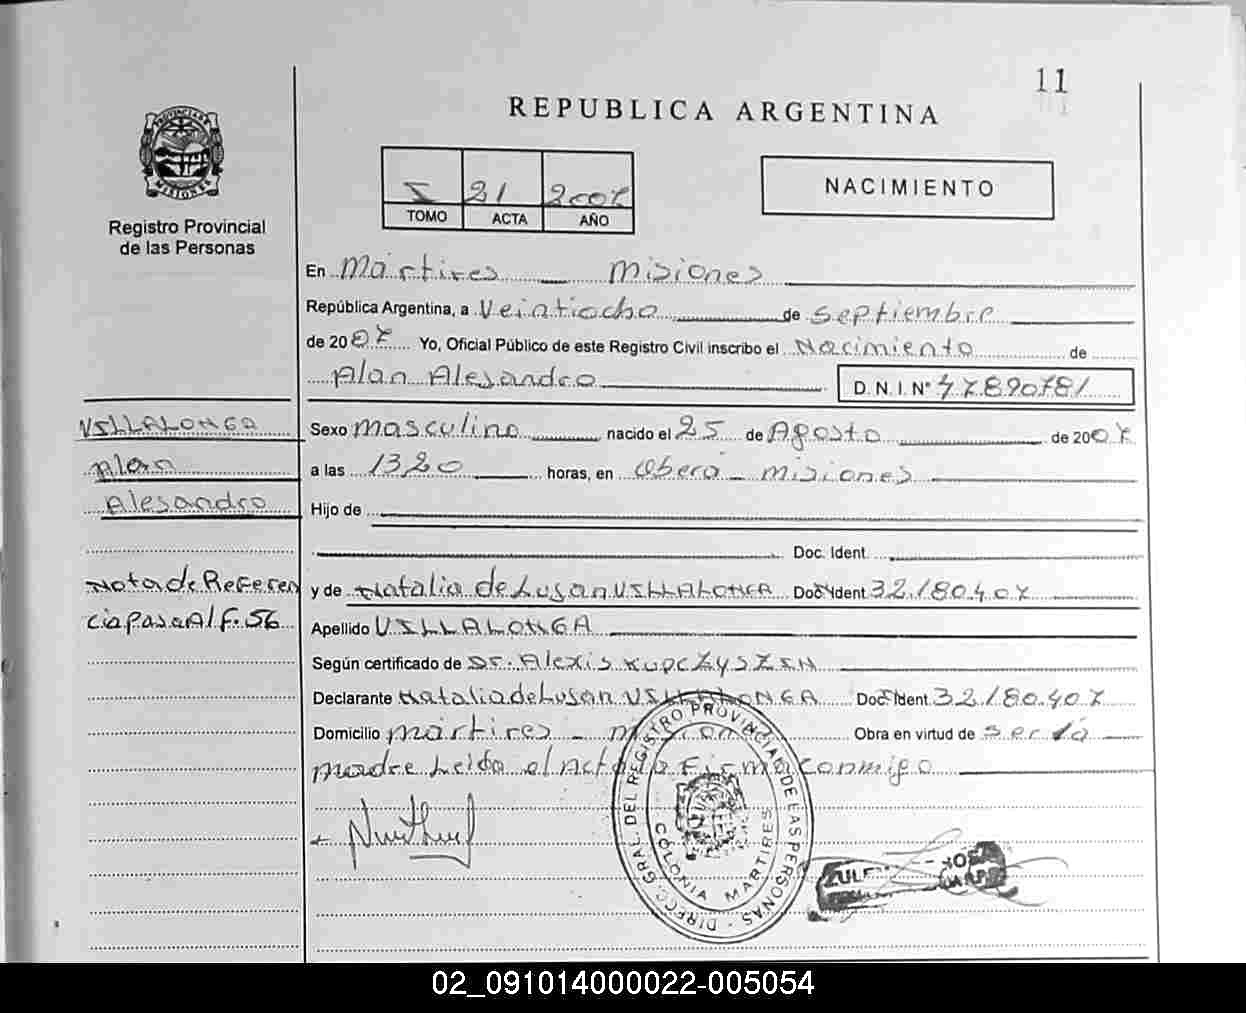 11
REPUBLICA ARGENTINA
PROVINCIA DE
MISIONES
Registro Provincial
de las Personas
I 21 2007
TOMO ACTA AÑO
NACIMIENTO
En Mártires Misiones
República Argentina, a Veintiocho de septiembre
de 2007 Yo, Oficial Público de este Registro Civil inscribo el Nacimiento de
Alan Alejandro D.N.I.Nº 47890781
VILLALONGA
Alan
Alejandro
Sexo masculino nacido el 25 de Agosto de 2007
a las 1320 horas, en Oberá - misiones
Hijo de
Doc. Ident.
Nota de Referen
cia pasa Al F. 56
y de Natalia de Lujan VILLALONGA Doc. Ident 32.180.407
Apellido VILLALONGA
Según certificado de Dr. Alexis KUPCZYSZIN
Declarante Natalia de Lujan VILLALONGA Doc. Ident 32.180.407
Domicilio mártires - Obra en virtud de ser la
madre Leida el Acta la Firma conmigo
DIRECC. GRAL. DEL REGISTRO PROVINCIAL DE LAS PERSONAS
COLONIA MARTIRES
02_091014000022-005054